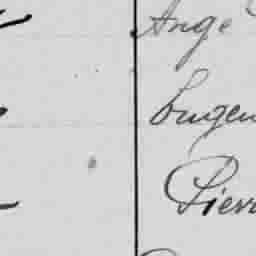 Ange
Eugen
Pierr